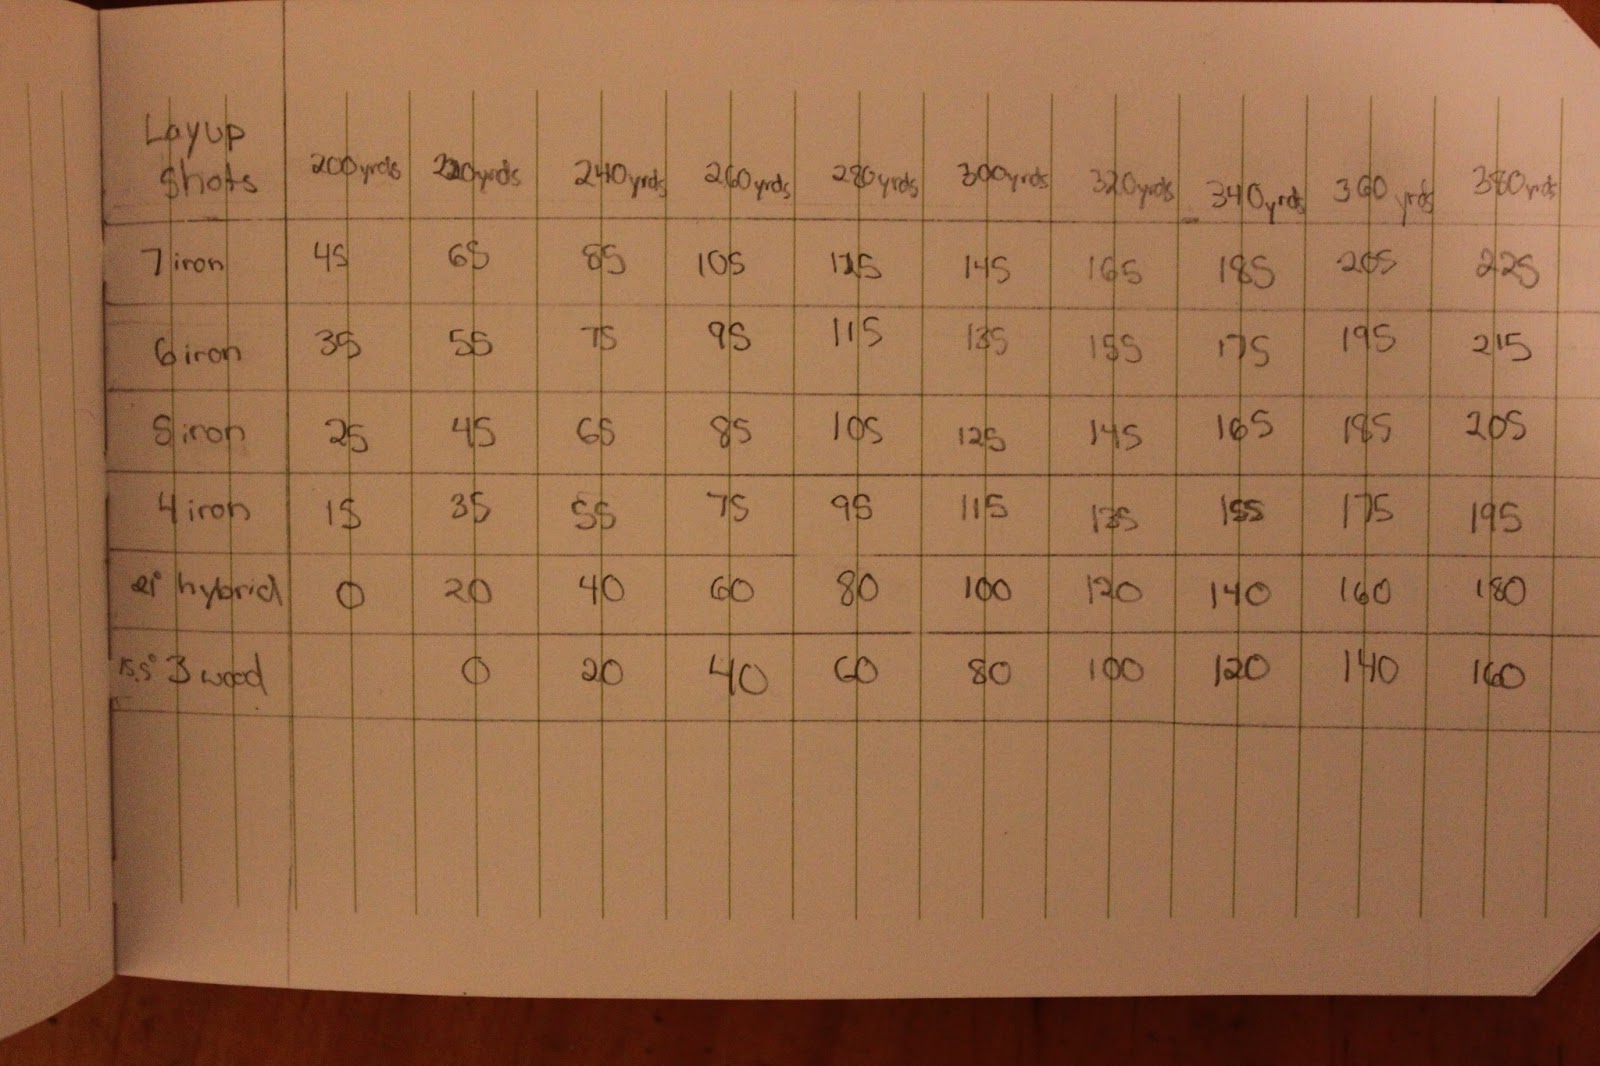 Layup
Shots 200yrds 220yrds 240yrds 260yrds 280yrds 300yrds 320yrds 340yrds 360 yrds 380yrds
7 iron 45 65 85 105 125 145 165 185 205 225
6 iron 35 55 75 95 115 135 155 175 195 215
5 iron 25 45 65 85 105 125 145 165 185 205
4 iron 15 35 55 75 95 115 135 155 175 195
21° hybrid 0 20 40 60 80 100 120 140 160 180
15.5° 3 wood 0 20 40 60 80 100 120 140 160